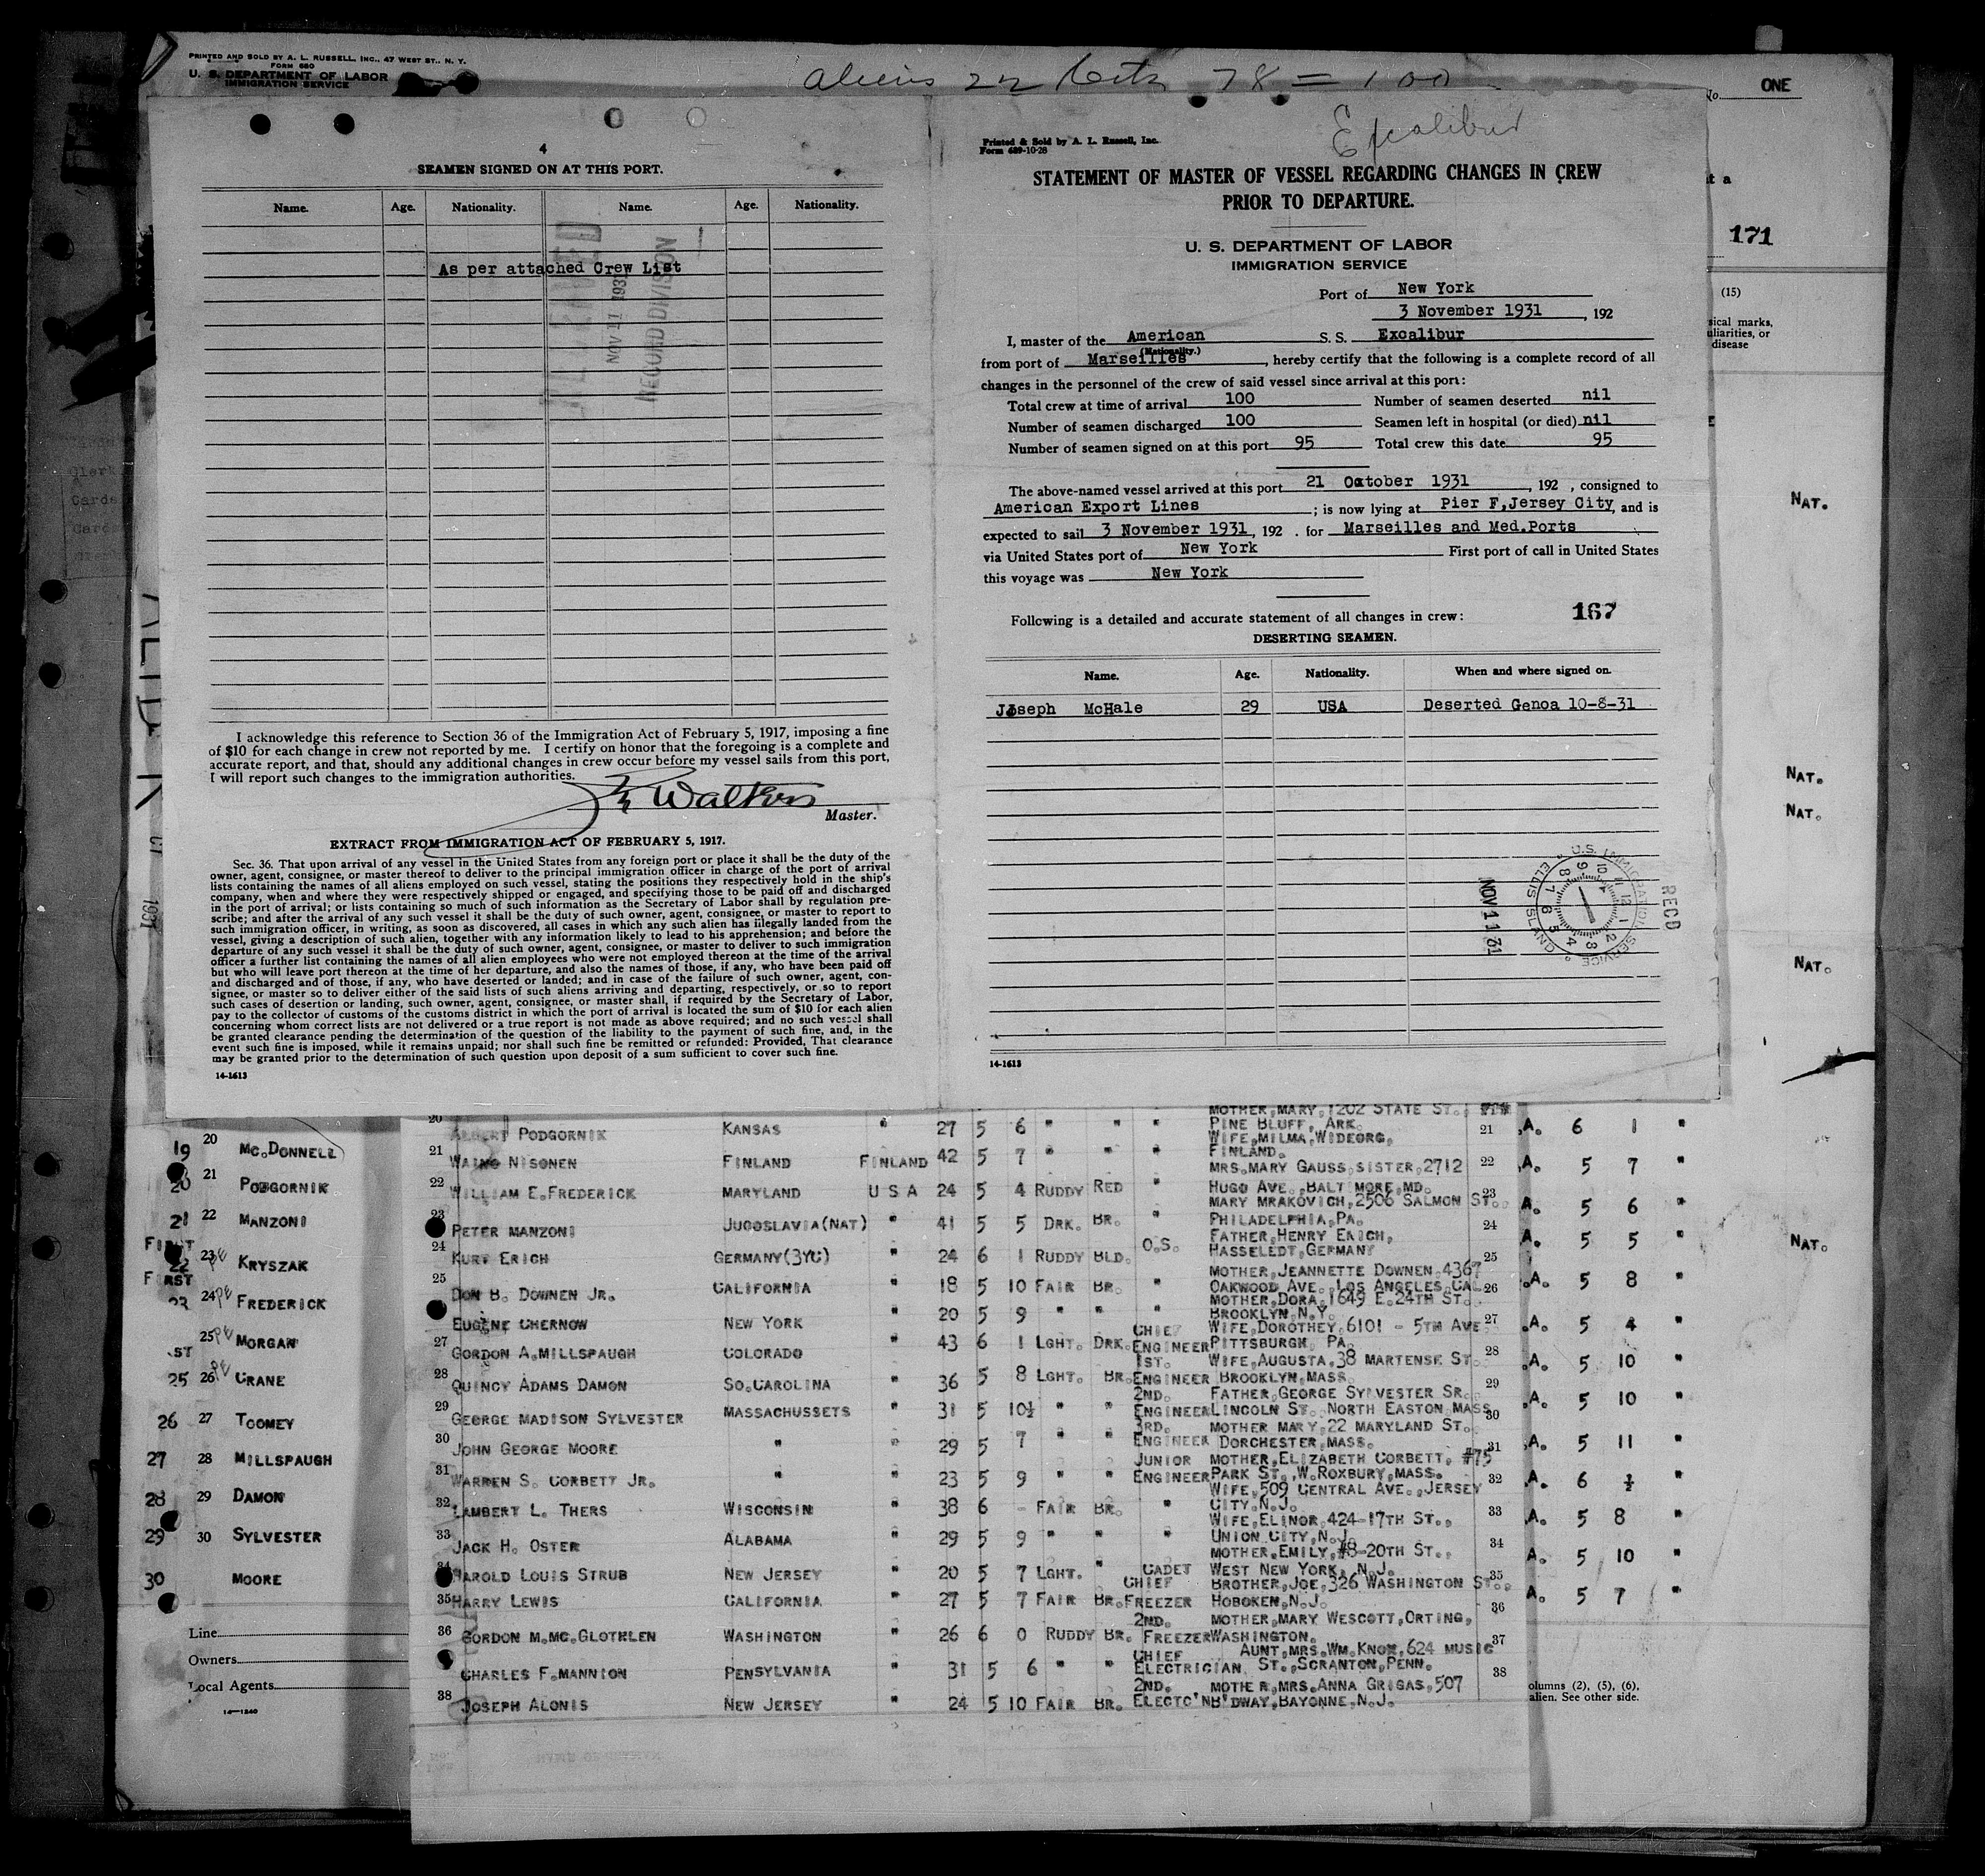 PRINTED AND SOLD BY A. L. RUSSELL, INC., 47 WEST ST., N. Y.
FORM 680
U. S. DEPARTMENT OF LABOR
IMMIGRATION SERVICE
Aliens 22 78 = 100
No. ONE
4
SEAMEN SIGNED ON AT THIS PORT.
Name. Age. Nationality. Name. Age. Nationality.
As per attached Crew List
NOV 11 1931
RECORD DIVISION
I acknowledge this reference to Section 36 of the Immigration Act of February 5, 1917, imposing a fine
of $10 for each change in crew not reported by me. I certify on honor that the foregoing is a complete and
accurate report, and that, should any additional changes in crew occur before my vessel sails from this port,
I will report such changes to the immigration authorities.
Walters
Master.
EXTRACT FROM IMMIGRATION ACT OF FEBRUARY 5, 1917.
Sec. 36. That upon arrival of any vessel in the United States from any foreign port or place it shall be the duty of the
owner, agent, consignee, or master thereof to deliver to the principal immigration officer in charge of the port of arrival
lists containing the names of all aliens employed on such vessel, stating the positions they respectively hold in the ship's
company, when and where they were respectively shipped or engaged, and specifying those to be paid off and discharged
in the port of arrival; or lists containing so much of such information as the Secretary of Labor shall by regulation pre-
scribe; and after the arrival of any such vessel it shall be the duty of such owner, agent, consignee, or master to report to
such immigration officer, in writing, as soon as discovered, all cases in which any such alien has illegally landed from the
vessel, giving a description of such alien, together with any information likely to lead to his apprehension; and before the
departure of any such vessel it shall be the duty of such owner, agent, consignee, or master to deliver to such immigration
officer a further list containing the names of all alien employees who were not employed thereon at the time of the arrival
but who will leave port thereon at the time of her departure, and also the names of those, if any, who have been paid off
and discharged and of those, if any, who have deserted or landed; and in case of the failure of such owner, agent, con-
signee, or master so to deliver either of the said lists of such aliens arriving and departing, respectively, or so to report
such cases of desertion or landing, such owner, agent, consignee, or master shall, if required by the Secretary of Labor,
pay to the collector of customs of the customs district in which the port of arrival is located the sum of $10 for each alien
concerning whom correct lists are not delivered or a true report is not made as above required; and no such vessel shall
be granted clearance pending the determination of the question of the liability to the payment of such fine, and, in the
event such fine is imposed, while it remains unpaid; nor shall such fine be remitted or refunded: Provided, That clearance
may be granted prior to the determination of such question upon deposit of a sum sufficient to cover such fine.
14-1613
Excalibur
Printed & Sold by A. L. Russell, Inc.
Form 689-10-28
STATEMENT OF MASTER OF VESSEL REGARDING CHANGES IN CREW
PRIOR TO DEPARTURE.
U. S. DEPARTMENT OF LABOR
IMMIGRATION SERVICE
Port of New York
3 November 1931, 192
I, master of the American S. S. Excalibur
(Nationality.)
from port of Marseilles, hereby certify that the following is a complete record of all
changes in the personnel of the crew of said vessel since arrival at this port:
Total crew at time of arrival 100 Number of seamen deserted nil
Number of seamen discharged 100 Seamen left in hospital (or died) nil
Number of seamen signed on at this port 95 Total crew this date 95
The above-named vessel arrived at this port 21 October 1931, 192 , consigned to
American Export Lines; is now lying at Pier F,Jersey City, and is
expected to sail 3 November 1931, 192 . for Marseilles and Med.Ports
via United States port of New York First port of call in United States
this voyage was New York
167
Following is a detailed and accurate statement of all changes in crew:
DESERTING SEAMEN.
Name. Age. Nationality. When and where signed on.
Joseph McHale 29 USA Deserted Genoa 10-8-31
RECD
U.S. IMMIGRATION SERVICE
ELLIS ISLAND
NOV 11 31
14-1613
t a
171
(15)
sical marks,
uliarities, or
disease
NAT.
NAT.
NAT.
NAT.
NAT.
19 20 MC.DONNELL
20 21 PODGORNIK
21 22 MANZONI
FIRST
22 23 KRYSZAK
FIRST
23 24 FREDERICK
25 MORGAN
ST
25 26 CRANE
26 27 TOOMEY
27 28 MILLSPAUGH
28 29 DAMON
29 30 SYLVESTER
30 MOORE
Line
Owners
Local Agents
14-1240
MOTHER,MARY,1202 STATE ST.,
20 ALBERT PODGORNIK KANSAS " 27 5 6 " " " PINE BLUFF, ARK.
WIFE,MILMA,WIDEORG,
21 WAINO NISONEN FINLAND FINLAND 42 5 7 " " " FINLAND.
MRS.MARY GAUSS,SISTER,2712
22 WILLIAM E.FREDERICK MARYLAND U S A 24 5 4 RUDDY RED " HUGO AVE.,BALTIMORE,MD.
MARY MRAKOVICH,2506 SALMON ST.
23 PETER MANZONI JUGOSLAVIA(NAT) " 41 5 5 DRK. BR. " PHILADELPHIA,PA.
FATHER,HENRY ERICH,
24 KURT ERICH GERMANY(3YC) " 24 6 1 RUDDY BLD. O.S. HASSELEDT,GERMANY
MOTHER,JEANNETTE DOWNEN,4367
25 DON B. DOWNEN JR. CALIFORNIA " 18 5 10 FAIR BR. " OAKWOOD AVE.,LOS ANGELES,CAL.
MOTHER,DORA,1649 E.24TH ST.
EUGENE CHERNOW NEW YORK " 20 5 9 " " " BROOKLYN,N.Y.
CHIEF WIFE,DOROTHEY,6101 - 5TH AVE
27 GORDON A.MILLSPAUGH COLORADO " 43 6 1 LGHT. DRK. ENGINEER PITTSBURGH, PA.
1ST. WIFE,AUGUSTA,38 MARTENSE ST.
28 QUINCY ADAMS DAMON SO.CAROLINA " 36 5 8 LGHT. BR. ENGINEER BROOKLYN,MASS.
2ND. FATHER,GEORGE SYLVESTER SR.
29 GEORGE MADISON SYLVESTER MASSACHUSSETS " 31 5 10½ " " ENGINEER LINCOLN ST. NORTH EASTON MASS
3RD. MOTHER MARY,22 MARYLAND ST.
30 JOHN GEORGE MOORE " " 29 5 7 " " ENGINEER DORCHESTER,MASS.
JUNIOR MOTHER,ELIZABETH CORBETT, #75
31 WARREN S. CORBETT JR. " " 23 5 9 " " ENGINEER PARK ST.,W.ROXBURY,MASS.
WIFE,509 CENTRAL AVE.,JERSEY
32 LAMBERT L. THERS WISCONSIN " 38 6 - FAIR BR. " CITY,N.J.
WIFE,ELINOR,424-17TH ST.,
33 JACK H. OSTER ALABAMA " 29 5 9 " " " UNION CITY,N.J.
MOTHER,EMILY,#8-20TH ST.,
34 HAROLD LOUIS STRUB NEW JERSEY " 20 5 7 LGHT. " CADET WEST NEW YORK, N.J.
CHIEF BROTHER,JOE,326 WASHINGTON ST.,
35 HARRY LEWIS CALIFORNIA " 27 5 7 FAIR BR. FREEZER HOBOKEN,N.J.
2ND. MOTHER,MARY WESCOTT,ORTING,
36 GORDON M.MC.GLOTHLEN WASHINGTON " 26 6 0 RUDDY BR. FREEZER WASHINGTON.
CHIEF AUNT,MRS.WM.KNOX,624 MUSIC
CHARLES F.MANNION PENSYLVANIA " 31 5 6 " " ELECTRICIAN ST.,SCRANTON,PENN.
2ND. MOTHER,MRS.ANNA GRIGAS,507
38 JOSEPH ALONIS NEW JERSEY " 24 5 10 FAIR BR. ELECTC'N B'DWAY,BAYONNE,N.J.
21 .A. 6 1 "
22 A. 5 7 "
23 A. 5 6 "
24 A. 5 5 "
25
26 .A. 5 8 "
27 .A. 5 4 "
28 .A. 5 10 "
29
30 .A. 5 10 "
31 .A. 5 11 "
32 .A. 6 ½ "
33 .A. 5 8 "
34 A. 5 10 "
35 A. 5 7 "
36
37
38
olumns (2), (5), (6),
alien. See other side.